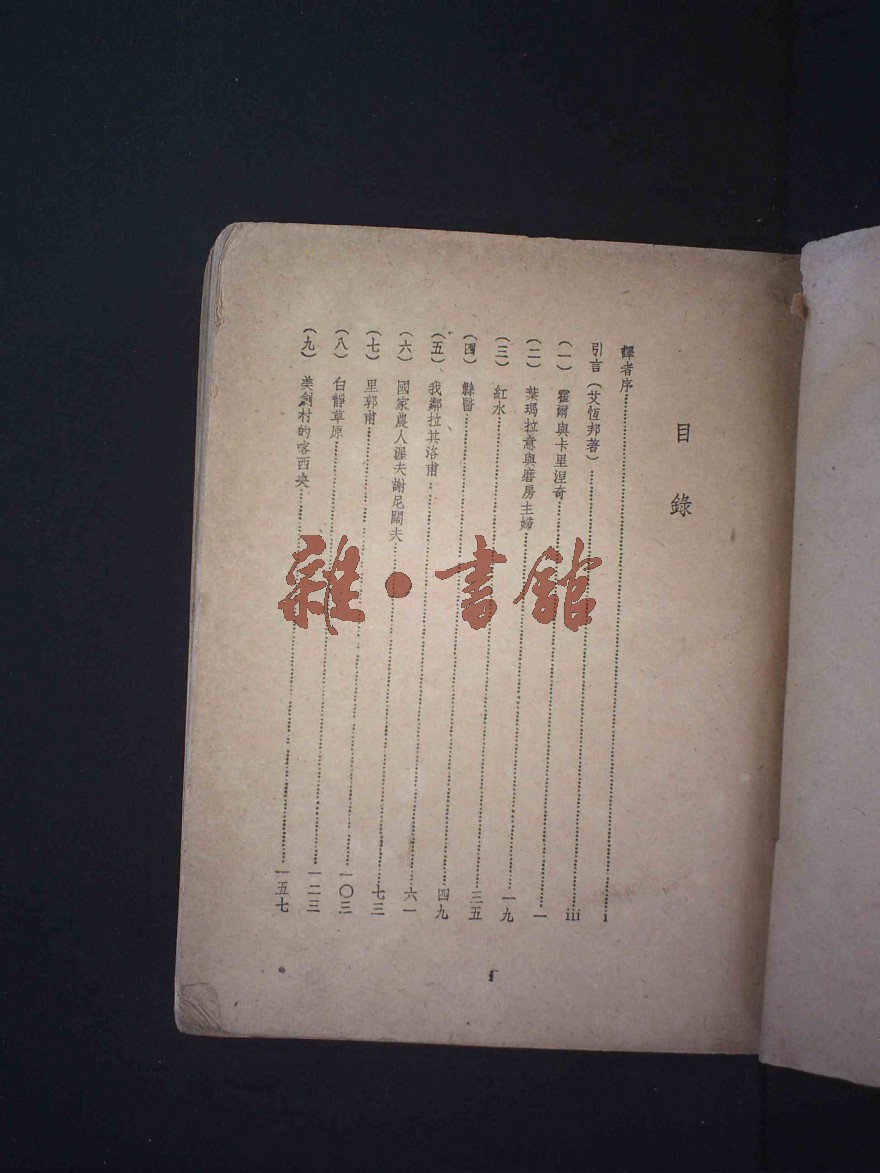 目錄
譯者序 i
引言（艾恆邦著） iii
（一） 霍爾與卡里涅奇 一
（二） 葉瑪拉意與磨房主婦 一九
（三） 紅水 三五
（四） 縣醫 四九
（五） 我鄰拉其洛甫 六一
（六） 國家農人渥夫謝尼闊夫 七三
（七） 里郭甫 一〇三
（八） 白靜草原 一二三
（九） 美劍村的喀西央 一五七
雜·書館